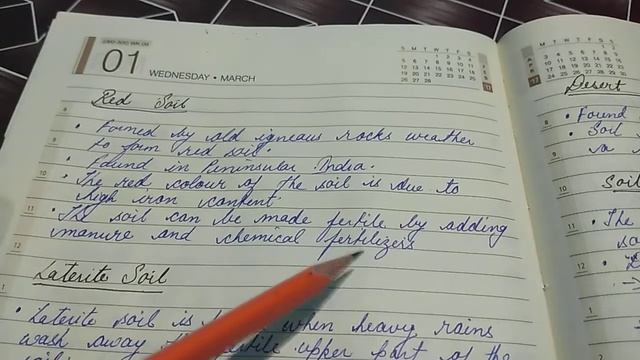 01
WEDNESDAY • MARCH
S M T W T F S
1 2 3 4
5 6 7 8 9 10 11
12 13 14 15 16 17 18
19 20 21 22 23 24 25
26 27 28
Red Soil
• Formed by old igneous rocks weather
to form red soil.
• Found in Peninsular India.
• The red colour of the soil is due to
high iron content.
• The soil can be made fertile by adding
manure and chemical fertilizers
Laterite Soil
• Laterite soil is when heavy rains
wash away upper part of the
8
9
10
11
12
1
M T W T F S
Desert
• Found
• Soil
Soil
• The
8
9
10
11
12